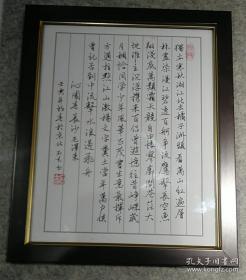 獨立寒秋湘江北去橘子洲頭看萬山紅遍層
林盡染漫江碧透百舸爭流鷹擊長空魚
翔淺底萬類霜天競自由悵寥廓問蒼茫大
地誰主沉浮攜來百侶曾遊憶往昔崢嶸歲
月稠恰同學少年風華正茂書生意氣揮斥
方遒指點江山激揚文字糞土當年萬戶侯
曾記否到中流擊水浪遏飛舟
沁園春長沙毛澤東